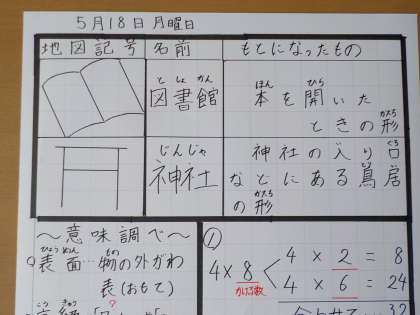 5月18日 月曜日
地図記号 名前 もとになったもの
としょかん
図書館
ほん ひら
本を開いた
かたち
ときの形
じんじゃ
神社
ぐち
神社の入り口
とり い
などにある鳥居
かたち
の形
～意味調べ～
ひょうめん もの
表面…物の外がわ
表(おもて)
①
4×8
かける数
4 × 2 = 8
4 × 6 = 24
32